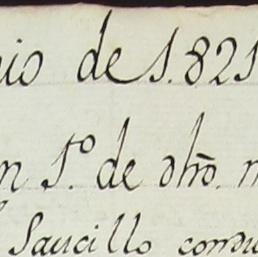 nio de 1.821
n 1.º de dho. m
Saucillo condu